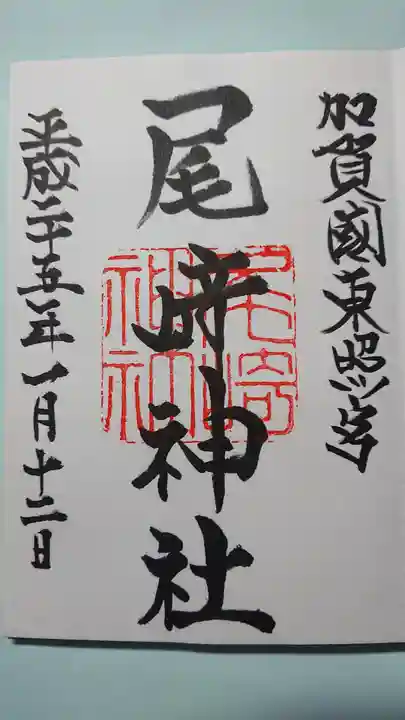 加賀國東照宮
尾﨑神社
尾崎
神社
平成二十五年一月十二日